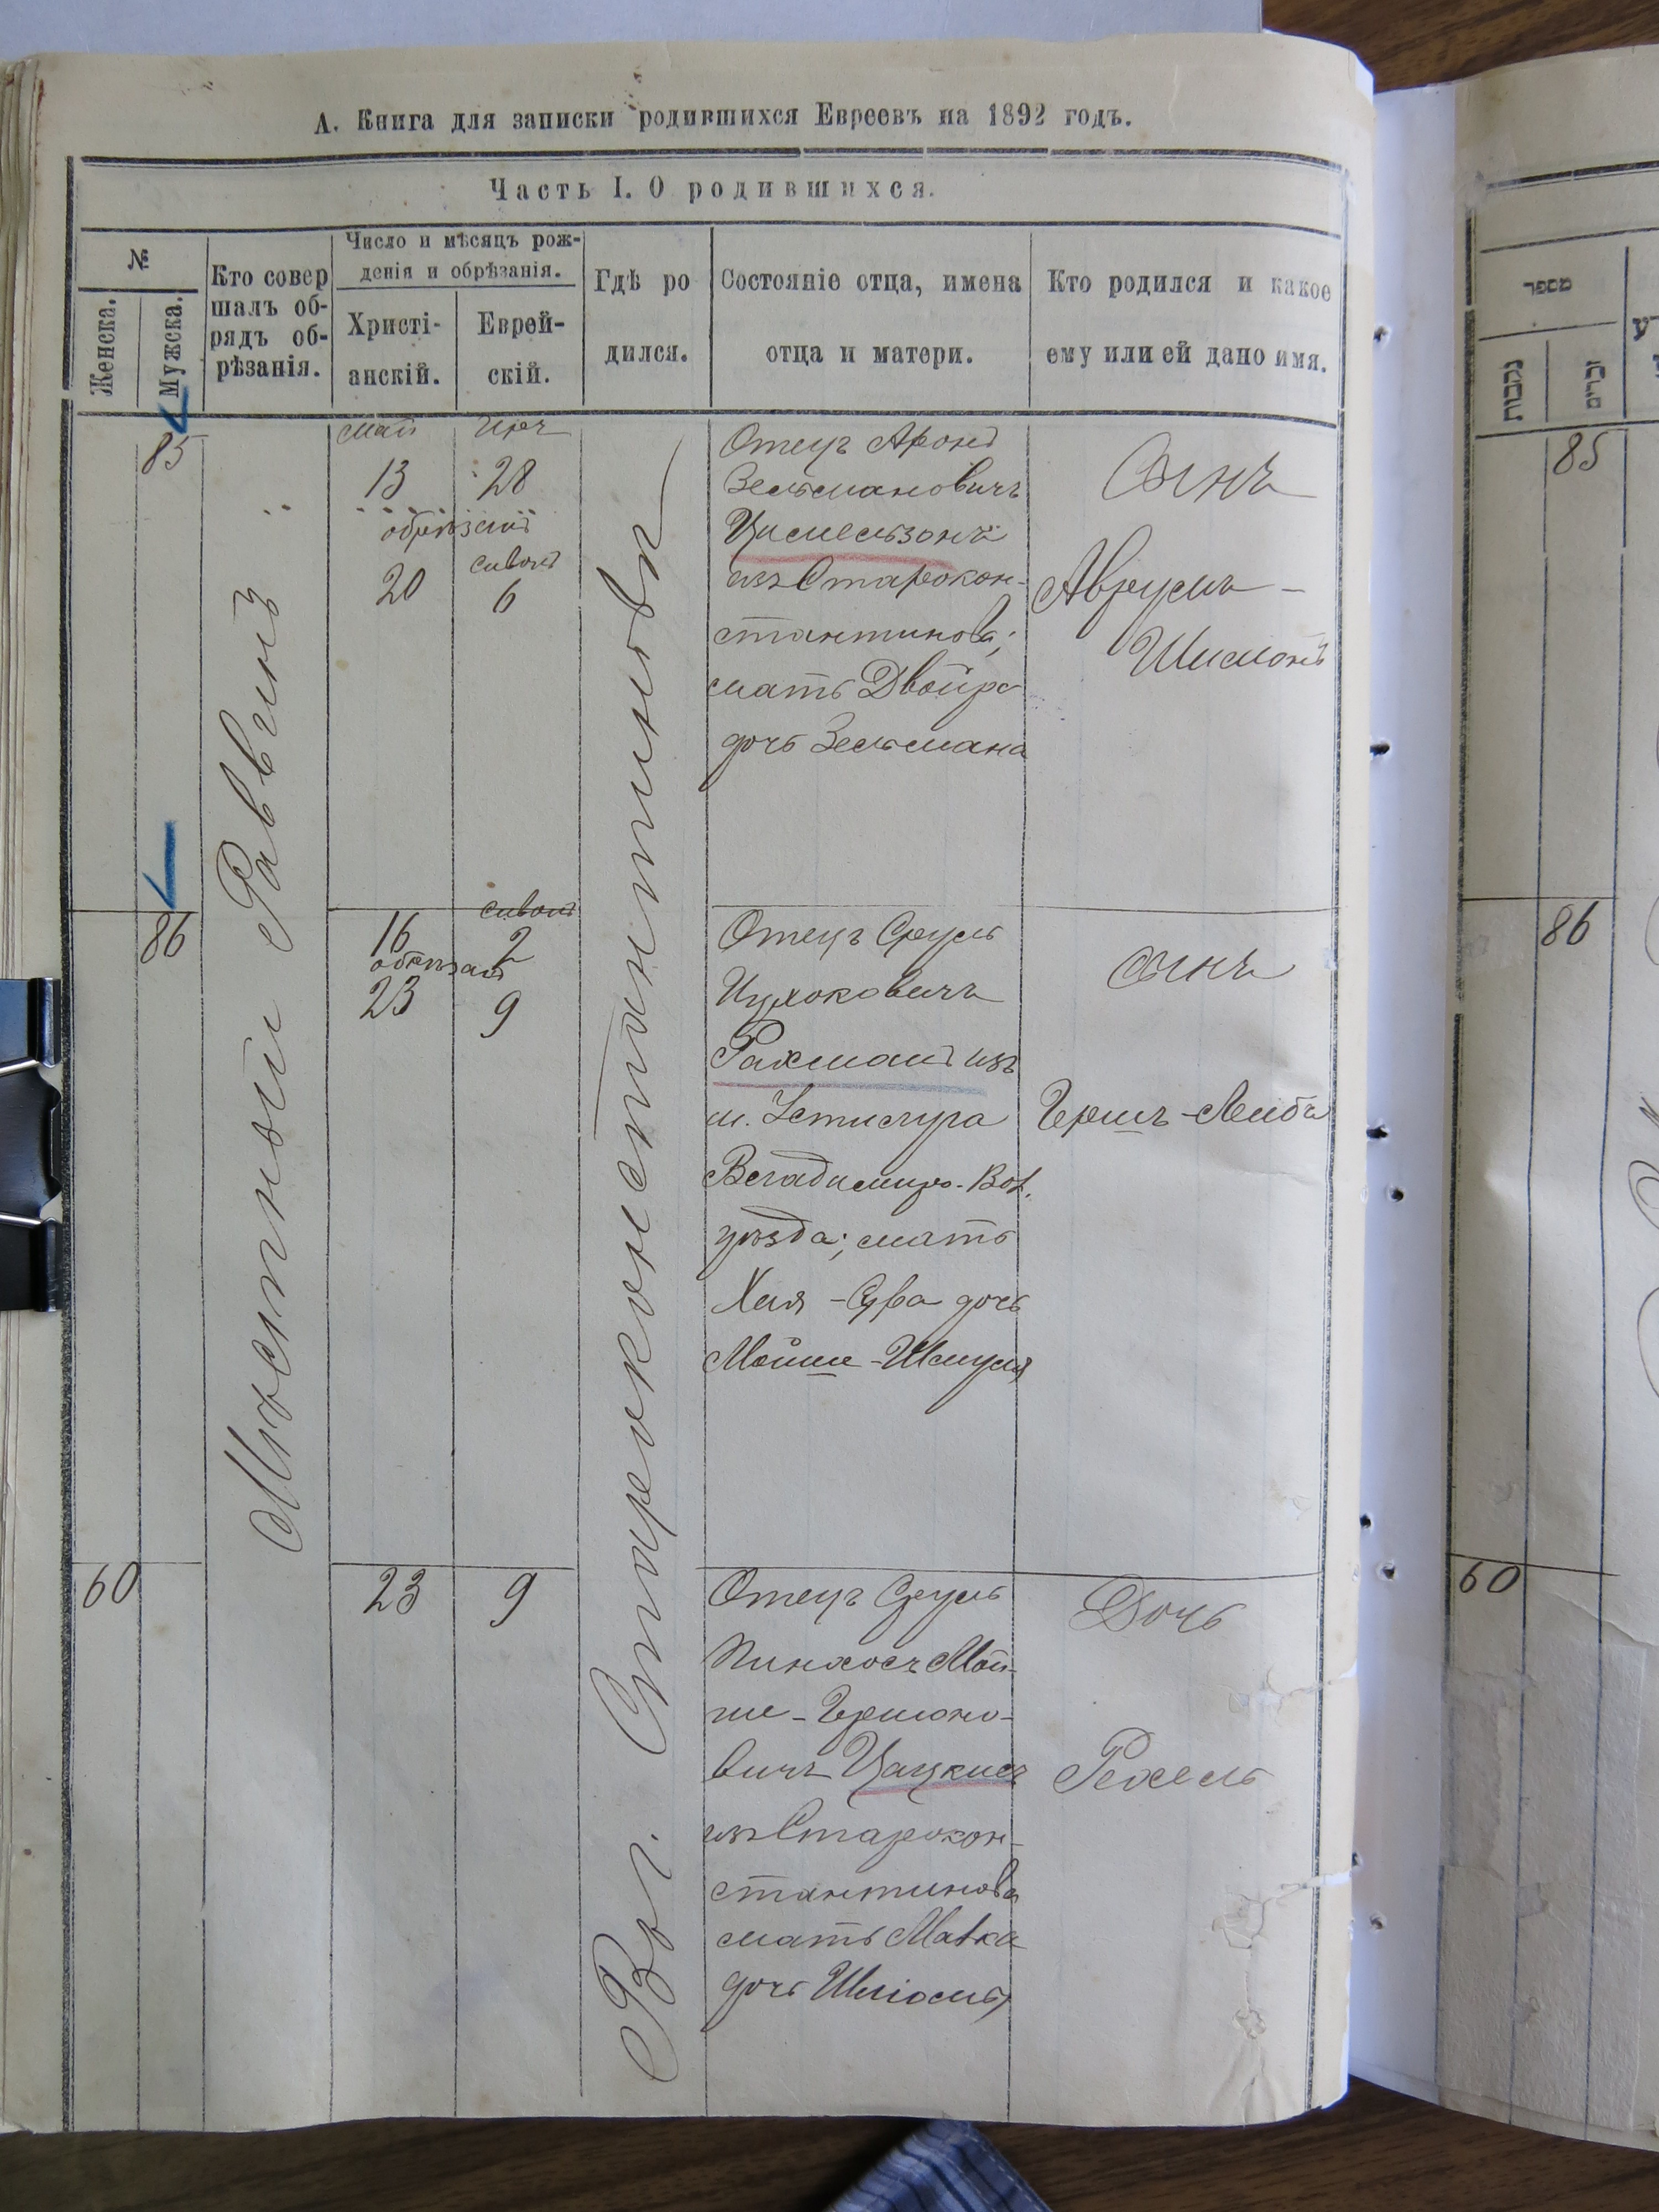 А. Книга для записки родившихся Евреевъ на 1892 годъ.
Часть I. О родившихся.
№
Женска.
Мужска.
Кто совер
шалъ об-
рядъ об-
рѣзанія.
Число и мѣсяцъ рож-
денія и обрѣзанія.
Христі-
анскій.
Еврей-
скій.
Гдѣ ро
дился.
Состояніе отца, имена
отца и матери.
Кто родился и какое
ему или ей дано имя.
Мѣстный Раввинъ
Вг. Староконстантиновѣ
85
май
13
28
обрѣзанъ
сиванъ
20
6
Отецъ Аронъ
Зельмановичъ
Цимельзонъ
изъ Старокон-
стантинова;
мать Двойра
дочь Зельмана
Сынъ
Аврумъ-
Шимонъ
86
сиванъ
16
2
обрѣзанъ
23
9
Отецъ Сруль
Ицхоковичъ
Рахманъ изъ
м. Устилуга
Владимиро-Вол.
уѣзда; мать
Хая-Сура дочь
Мойше-Шмуля
сынъ
Гершъ-Лейбъ
60
23
9
Отецъ Сруль
Пинхосъ Мой-
ше-Гершоно-
вичъ Цацкисъ
изъ Старокон-
стантинова
мать Малка
дочь Шліомы
Дочь
Рехель
מספר
נקבות
זכרים
85
86
60